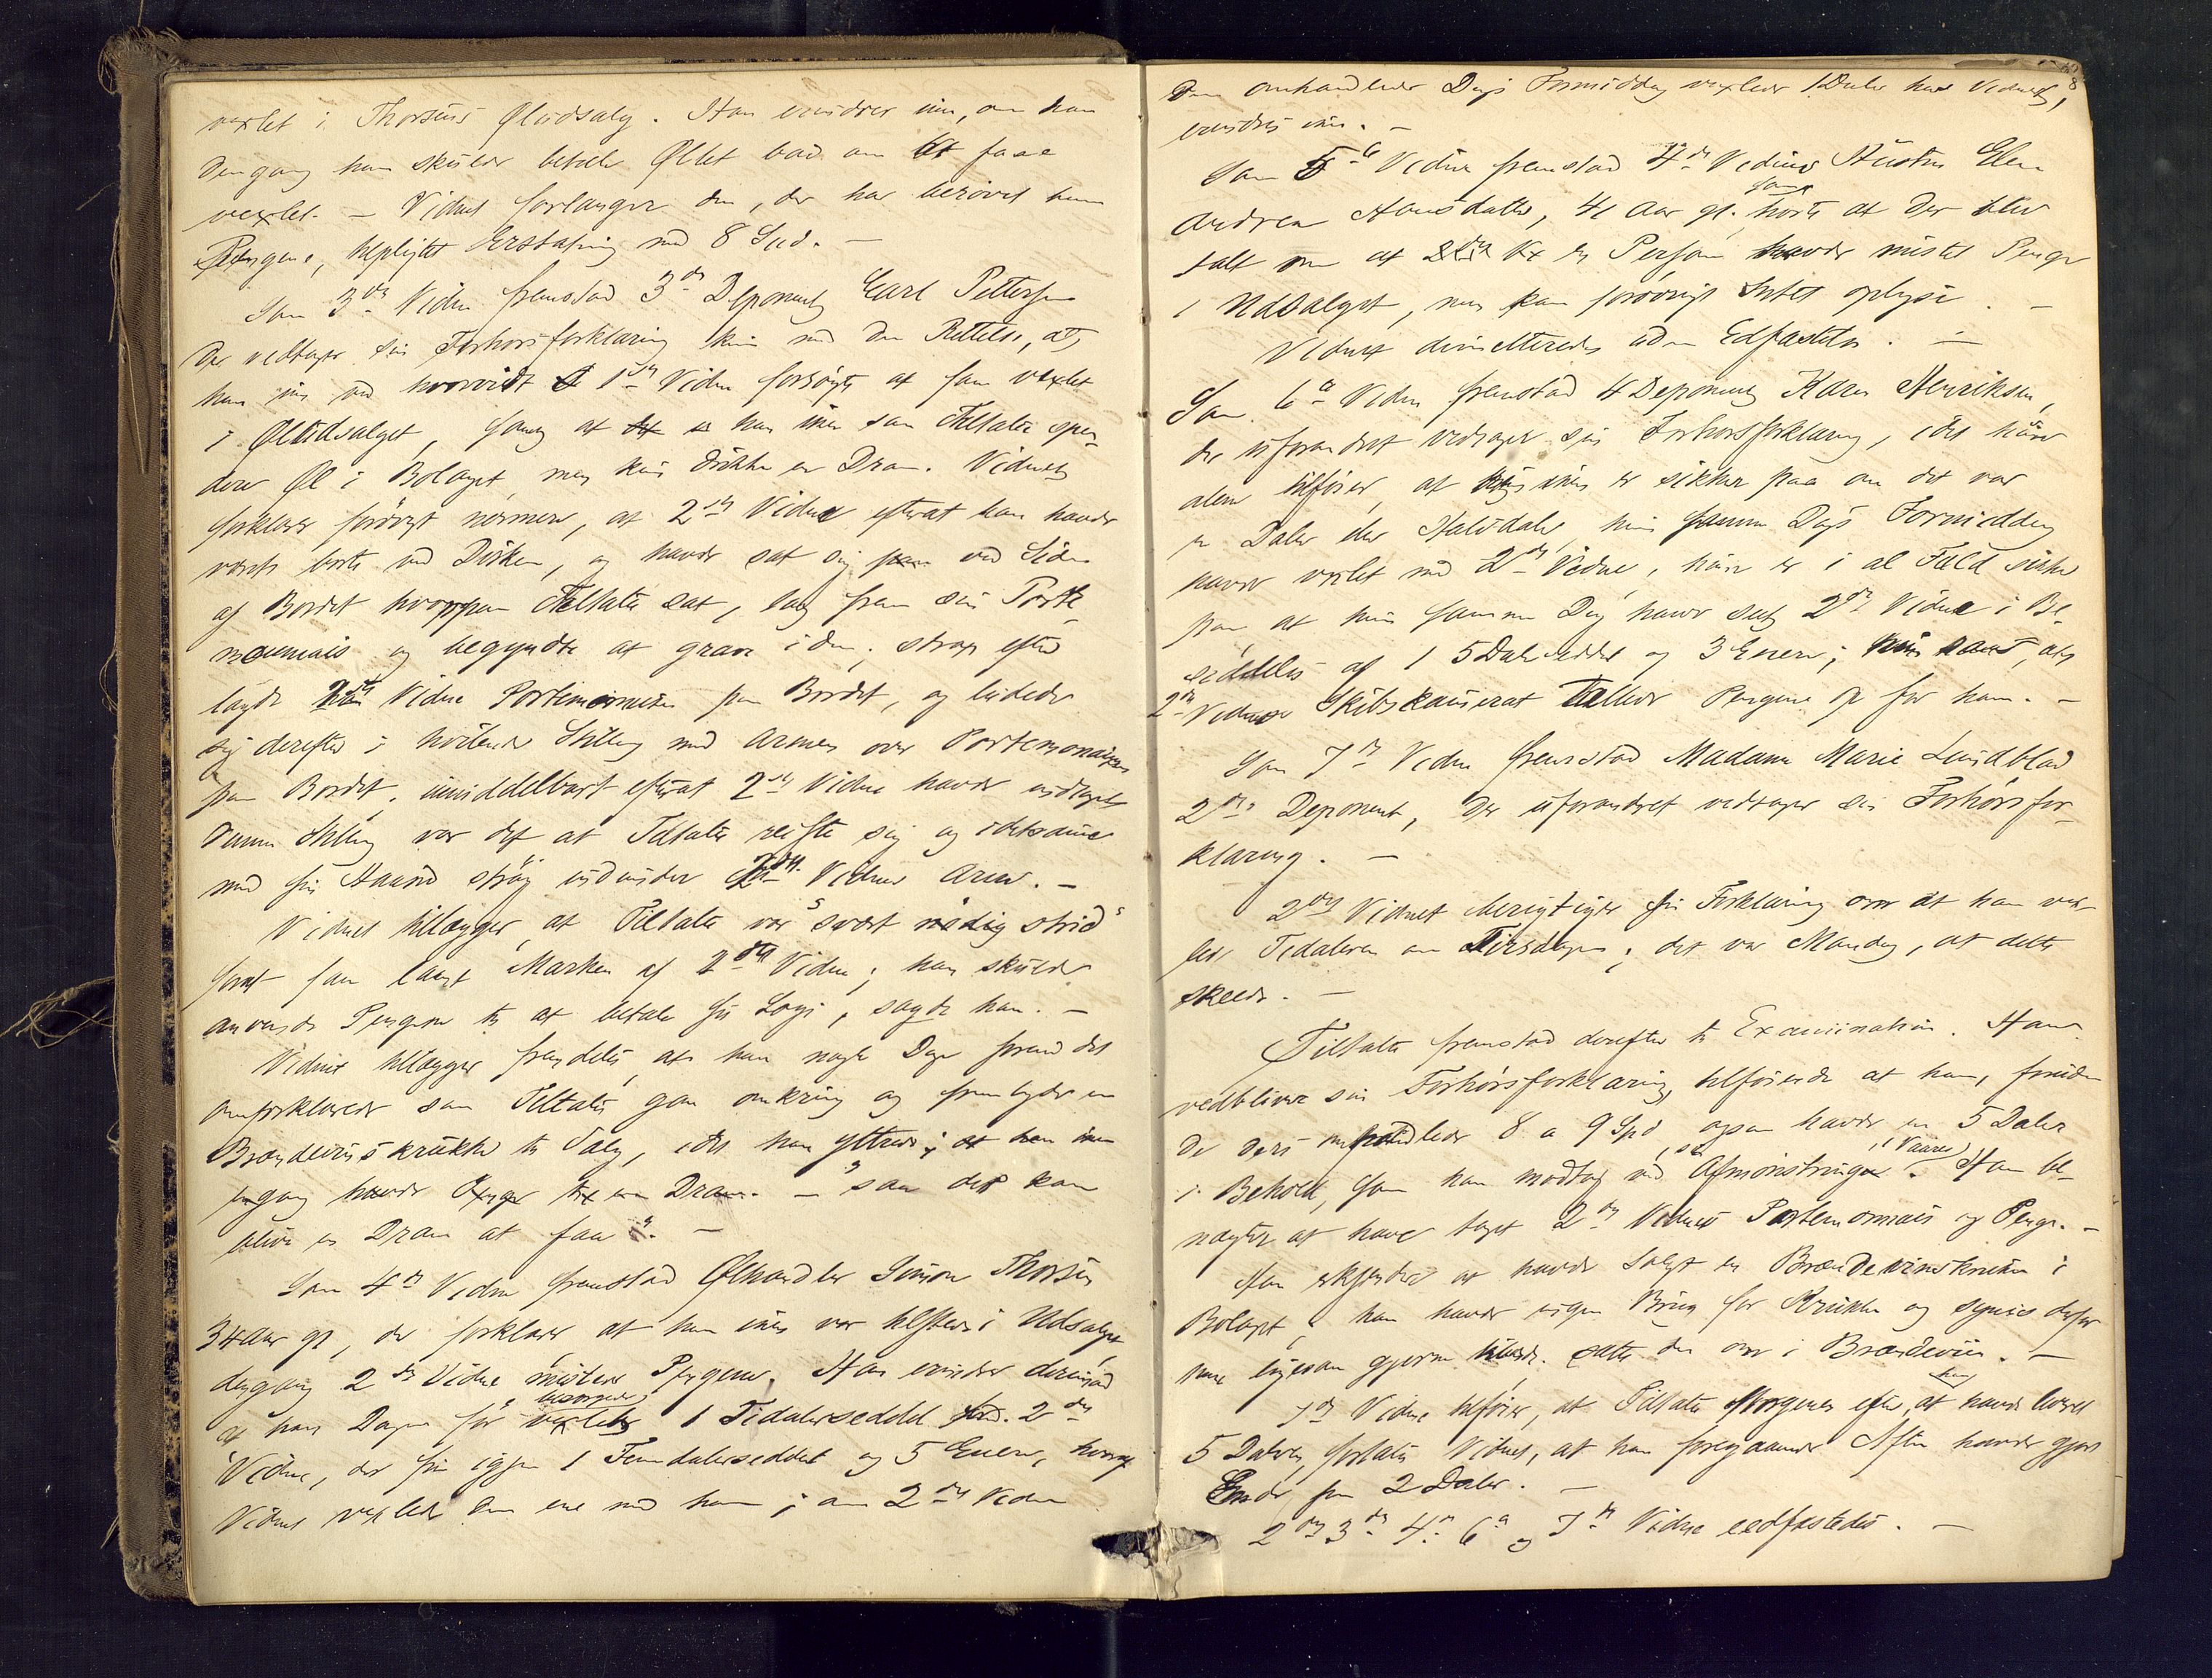 vexlet i Thorsens Øludsalg. Han erindrer ikke, om han
dengang han skulde betale Øllet bad om at faae
vexlet. — Vidnet forlanger den, der har berøvet ham
Pengene, tilpligtet Erstatning med 8 Spd. —
Som 3die Vidne fremstod 3die Deponent Carl Pettersen
der vedtager sin Forhørsforklaring kun med den Rettelse, at
han ikke ved hvorvidt 1ste Vidne forsøgte at faa vexlet
i Øludsalget, samt at han ikke saa Tiltalte spen-
dere Øl i Bolaget, men kun drikke en Dram. Vidnet
forklarer forøvrigt nærmere, at 2det Vidne efterat han havde
været borte ved Disken, og havde sat sig ved Siden
af Bordet hvorpaa Tiltalte sat, tog frem sin Porte-
monnais og begyndte at grave i den; strax efter
lagde 2det Vidne Portemonnaien paa Bordet, og lænede
sig derefter i hvilende Stilling med Armen over Portemonnaien
paa Bordet. umiddelbart efterat 2det Vidne havde indtaget
denne Stilling var det at Tiltalte reiste sig og idetsamme
med sin Haand strøg ind under 2det Vidnes Arm. —
Vidnet tillægger, at Tiltalte var "svært nødig strid"
for at faa laant Marken af 2det Vidne; han skulde
anvende Pengene til at betale sit Logi, sagde han. —
Vidnet tillægger fremdeles, at han nogle Dage forend det
omforklarede saa Tiltalte gaa omkring og frembyde en
Brændeviinskrukke til Salg, idet han yttrede; at han ikke
engang havde Penge til en Dram. — "saa det kan
blive en Dram at faa". —
Som 4de Vidne fremstod Ølhandler Simon Thorsen
34 Aar gl, der forklarer at han ikke var tilstede i Udsalget
dengang 2det Vidne mistede Pengene. Han erindrer derimod
at han Dagen før vexlede 1 Tidalerseddel for 2det
Vidne, der fik igjen 1 Femdalerseddel og 5 Enere, hvoraf
Vidnet vexlede den ene med ham; om 2det Vidne
8
den omhandlede Dags Formiddag vexlede 1 Daler hos Vidnet,
erindres ikke. —
Som 5te Vidne fremstod 4de Vidnes Hustru Elen
Andrea Arnsdatter, 41 Aar gl. hørte at der blev
talt om at en Person havde mistet Penge
i Udsalget, men kan forøvrigt Intet oplyse. —
Vidnet dimitteredes uden Edfæstelse. —
Som 6te Vidne fremstod 4 Deponent Karen Henriksen,
der uforandret vedtager sin Forhørsforklaring, idet hun
alene tilføier, at hun ikke er sikker paa om det var
en Daler eller Halvdaler, hun samme Dags Formiddag
havde vexlet med 2det Vidne, hun er i al Fald sikker
paa at hun samme Dag havde seet 2det Vidne i Be-
siddelse af 1 5Dalerseddel og 3 Enere;
2det Vidnes Skibskamerat tællede Pengene op for ham. —
Som 7de Vidne fremstod Madame Marie Lundblad
2den Deponent, der uforandret vedtager sin Forhørsfor-
klaring. —
2det Vidnet berigtiger sin Forklaring om at han vex-
lede Tidaleren om Tirsdagen; det var Mandag, at dette
skede. —
Tiltalte fremstod derefter til Examination. Han
vedbliver sin Forhørsforklaring, tilføiende at han, foruden
de deri omhandlede 8 a 9 Spd, ogsaa havde en 5 Daler
i Behold, som han modtog ved Afmønstringen i Vaares. Han be-
nægter at have taget 2det Vidnes Portemonnais og Penge. —
Han erkjender at have solgt en Brændeviinskrukke i
Bolaget; han havde ingen Brug for Krukken og syntes derfor
han ligesaa gjerne kunde sætte den over i Brændeviin. —
7de Vidne tilføier, at Tiltalte Morgenen efter, at han havde leveret
5 Daleren, fortalte Vidnet, at han foregaaende Aften havde gjort
Ende paa 2 Daler. —
2det 3die 4de 6te og 7de Vidne eedfæstedes. —